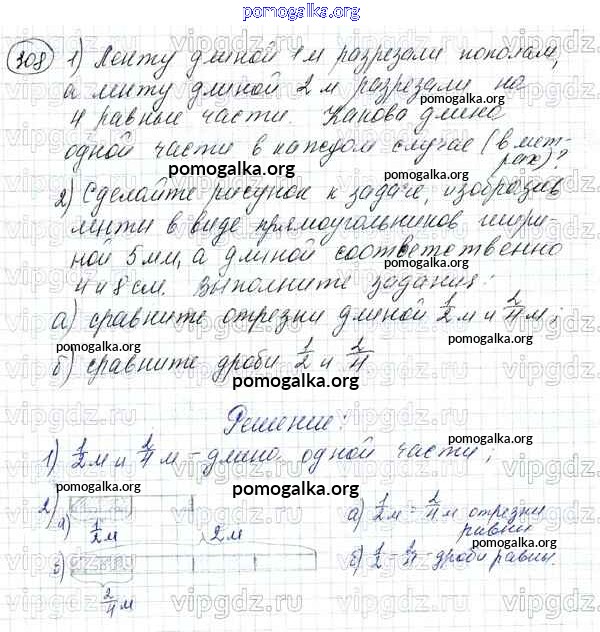 pomogalka.org
308 1) Ленту длиной 1 м разрезали пополам,
а ленту длиной 2 м разрезали на
4 равные части. Какова длина
одной части в каждом случае (в мет-
рах)?
2) Сделайте рисунок к задаче, изобразив
ленты в виде прямоугольников шири-
ной 5 мм, а длиной соответственно
4 и 8 см. Выполните задания:
а) сравните отрезки длиной 1/2 м и 2/4 м;
б) сравните дроби 1/2 и 2/4
Решение:
1) 1/2 м и 2/4 м - длина одной части;
2)
а) 1/2 м
2 м
б)
2/4 м
а) 1/2 м = 2/4 м отрезки
равны
б) 1/2 = 2/4 - дроби равны.
pomogalka.org
vipgdz.ru